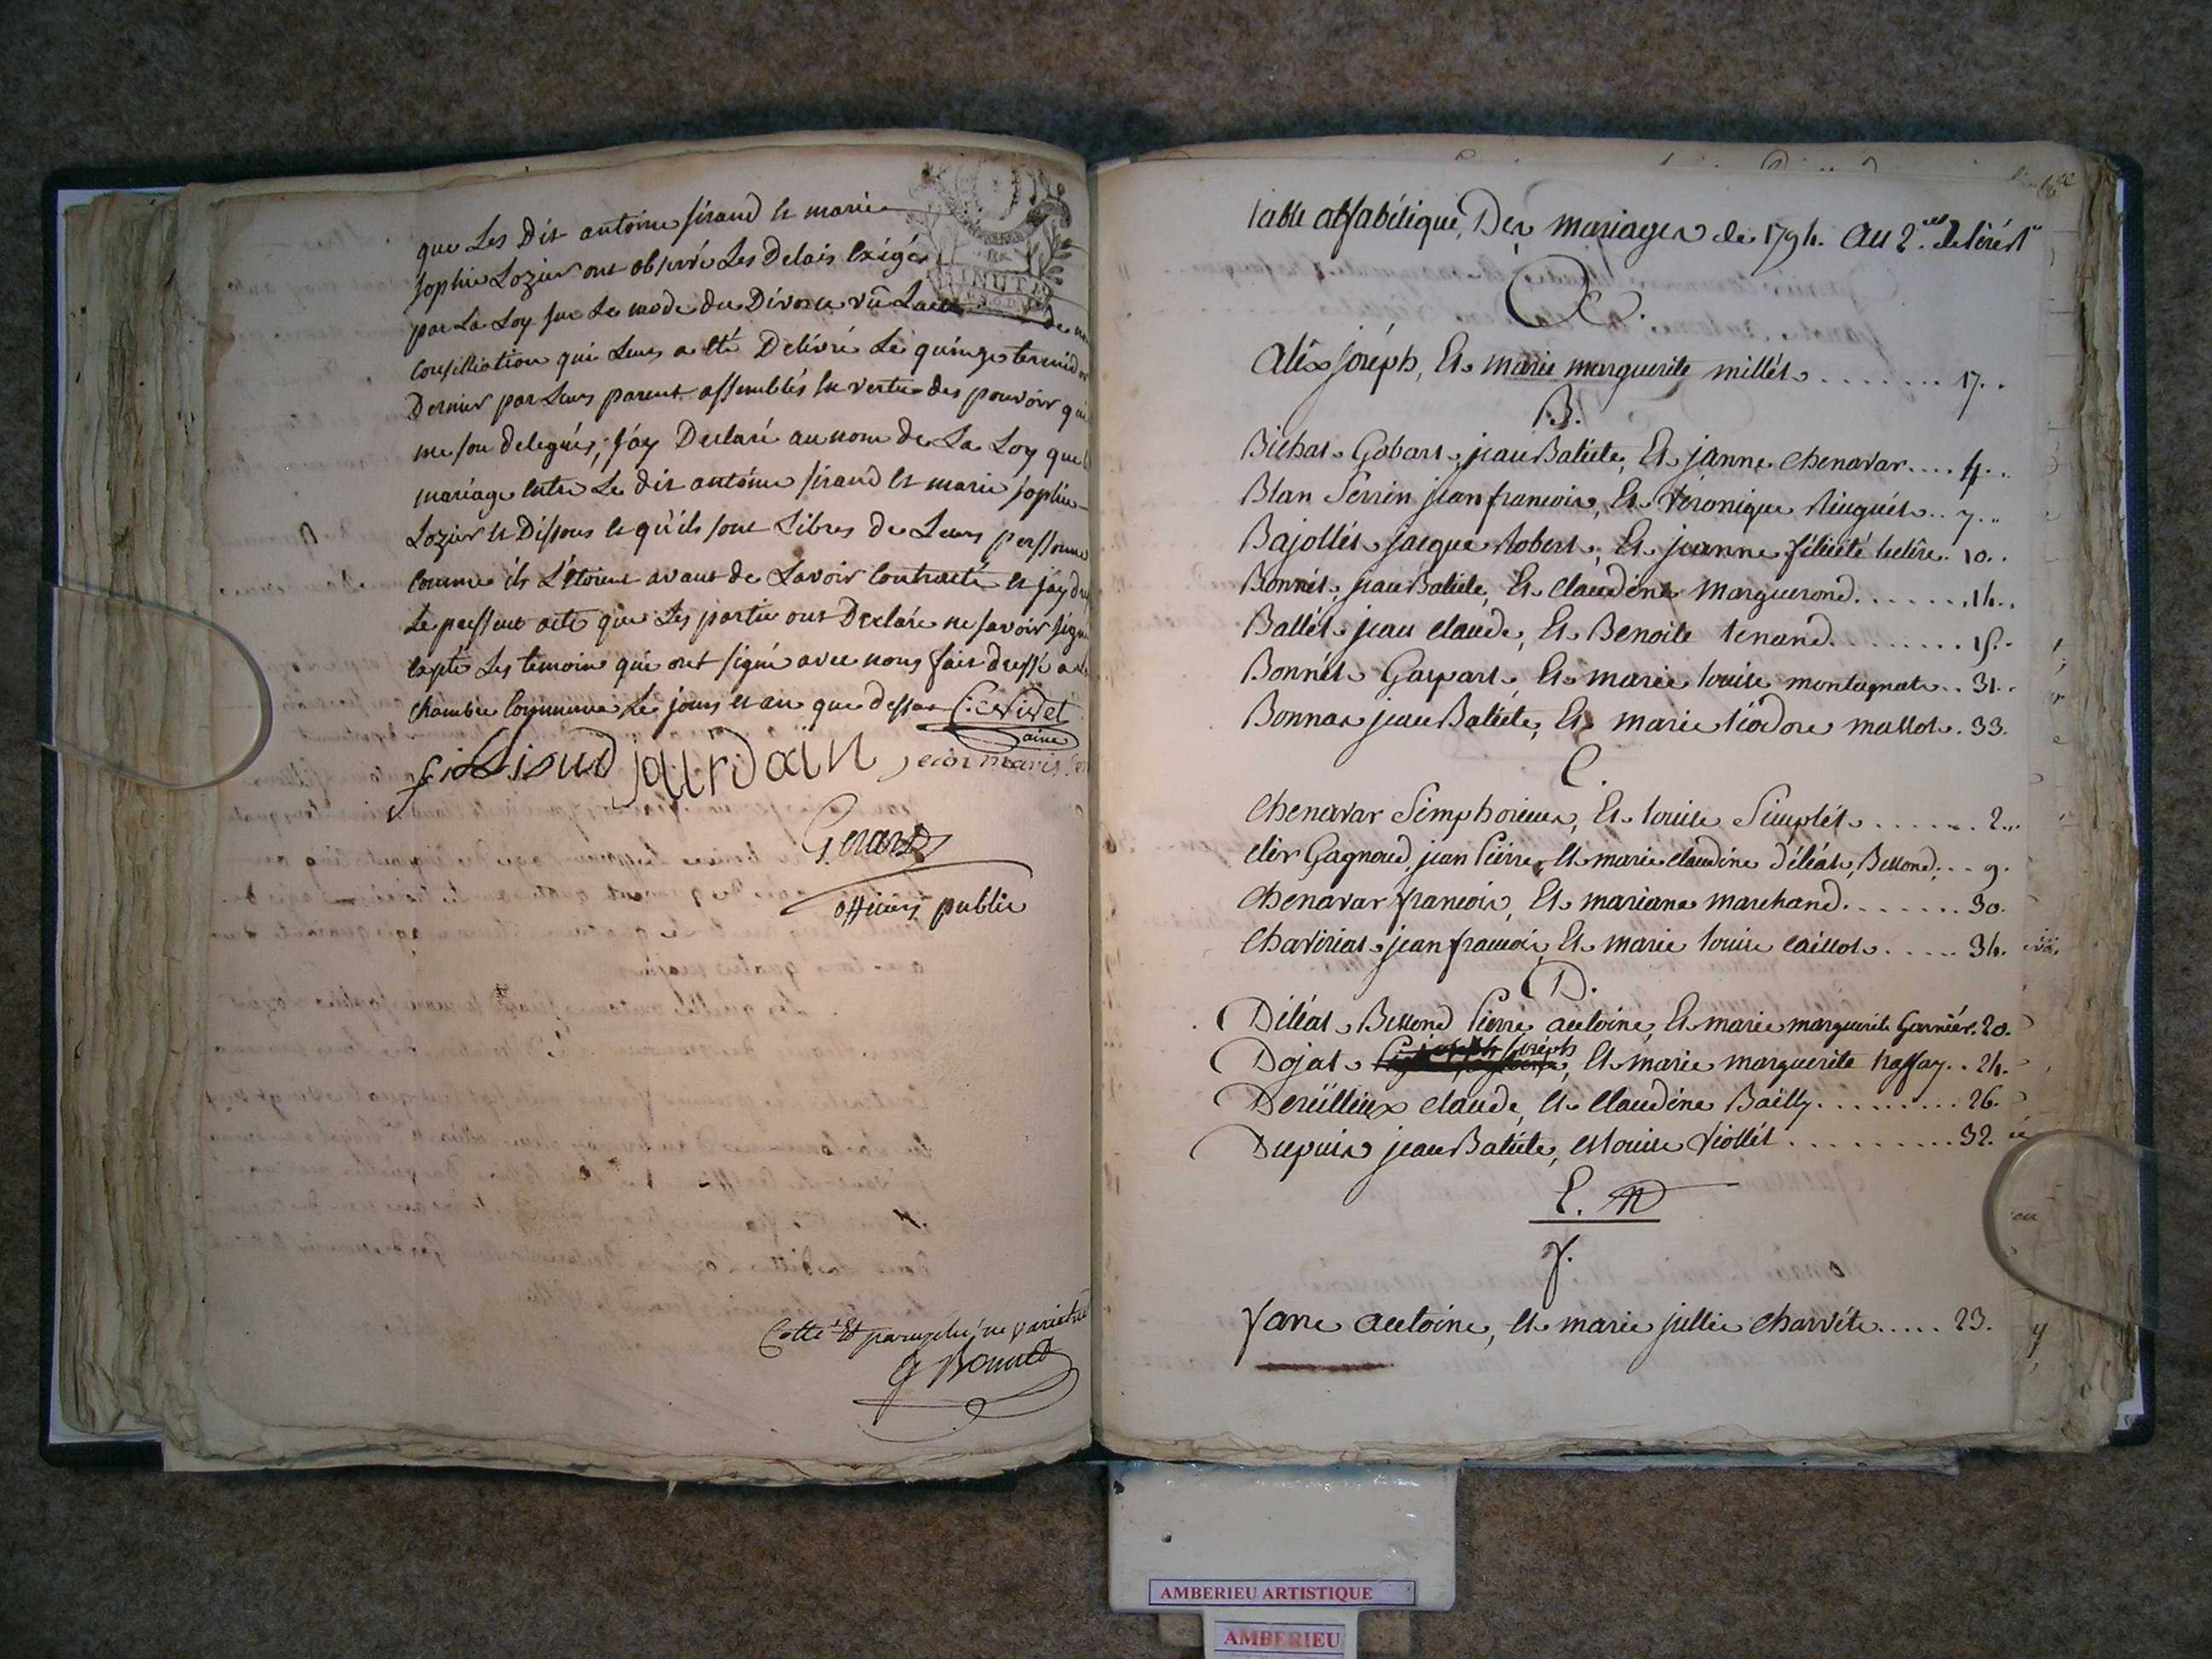 que Les Dit antoine sirand et marie
sophie Lozier ont observé Les Delais Exigé
par La Loy sur Le mode du Divorce vû Lacte de
Consilliation qui Leurs a été Delivré Le quinze
Dernier par Leurs parent assemblés En vertue des pouvoir
me son delegués, jay Declaré au nom de La Loy que
mariage Entre Le dit antoine sirand et marie sophie
Lozier et Dissous et qu'ils sont Libres de Leurs
comme ils L'étoient avant de Lavoir Contracté et jay
Le pressent acte que Les partie ont Déclaré ne savoir
Les temoins qui ont signé avec nous fait dressé
chambre Commune Les jours et an que dessus
jaurdain
Gerard
officier public
Cotté Et paraphé ne varietur
Bonnet
MINUTE
table alfabétique, Des mariages de 1794. au 2.
A.
Aléx joséph, Et marie marguerite millét 17.
B.
Bichat Gobart jean Batiste, Et janne Chenavar 4.
Blan Perrin jean francois, Et Véronique 7.
Bajollét jacque Robert, Et jeanne félicité 10.
Bonnét, jean Batiste, Et Claudine Marguerond 14.
Ballét jean claude, Et Benoite tenand 15.
Bonnét Gaspart, Et marie louise montagnat 31.
Bonnas jean Batiste, Et marie tiodore mallot 33.
C.
Chenavar Simphorien, Et louise 2.
clér Gagnoud, jean Pierre, Et marie claudine déléat, Bessond, 9.
Chenavar francois, Et mariane marchand 30.
Chaviriat jean francois, Et marie louise caillot 34.
D.
Déléat Bessond Pierre antoine, Et marie marguerite Garniér. 20.
Dojat joséph, Et marie marguerite 24.
claude, Et claudine Bailly 26.
Dupuis jean Batiste, Et louise Viollét 32.
E.
f.
favre antoine, Et marie jullie Charvét 23.
AMBERIEU ARTISTIQUE
AMBERIEU